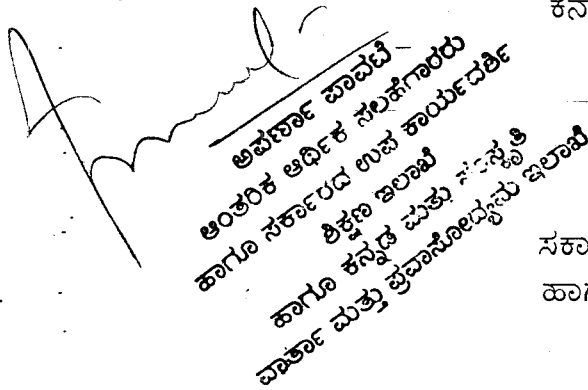 ಕನ
ಅಪರ್ಣಾ ಪಾವಟೆ
ಆಂತರಿಕ ಆರ್ಥಿಕ ಸಲಹೆಗಾರರು
ಹಾಗೂ ಸರ್ಕಾರದ ಉಪ ಕಾರ್ಯದರ್ಶಿ
ಶಿಕ್ಷಣ ಇಲಾಖೆ
ಹಾಗೂ ಕನ್ನಡ ಮತ್ತು ಸಂಸ್ಕೃತಿ
ವಾರ್ತಾ ಮತ್ತು ಪ್ರವಾಸೋದ್ಯಮ ಇಲಾಖೆ
ಸಕಾ
ಹಾಗ